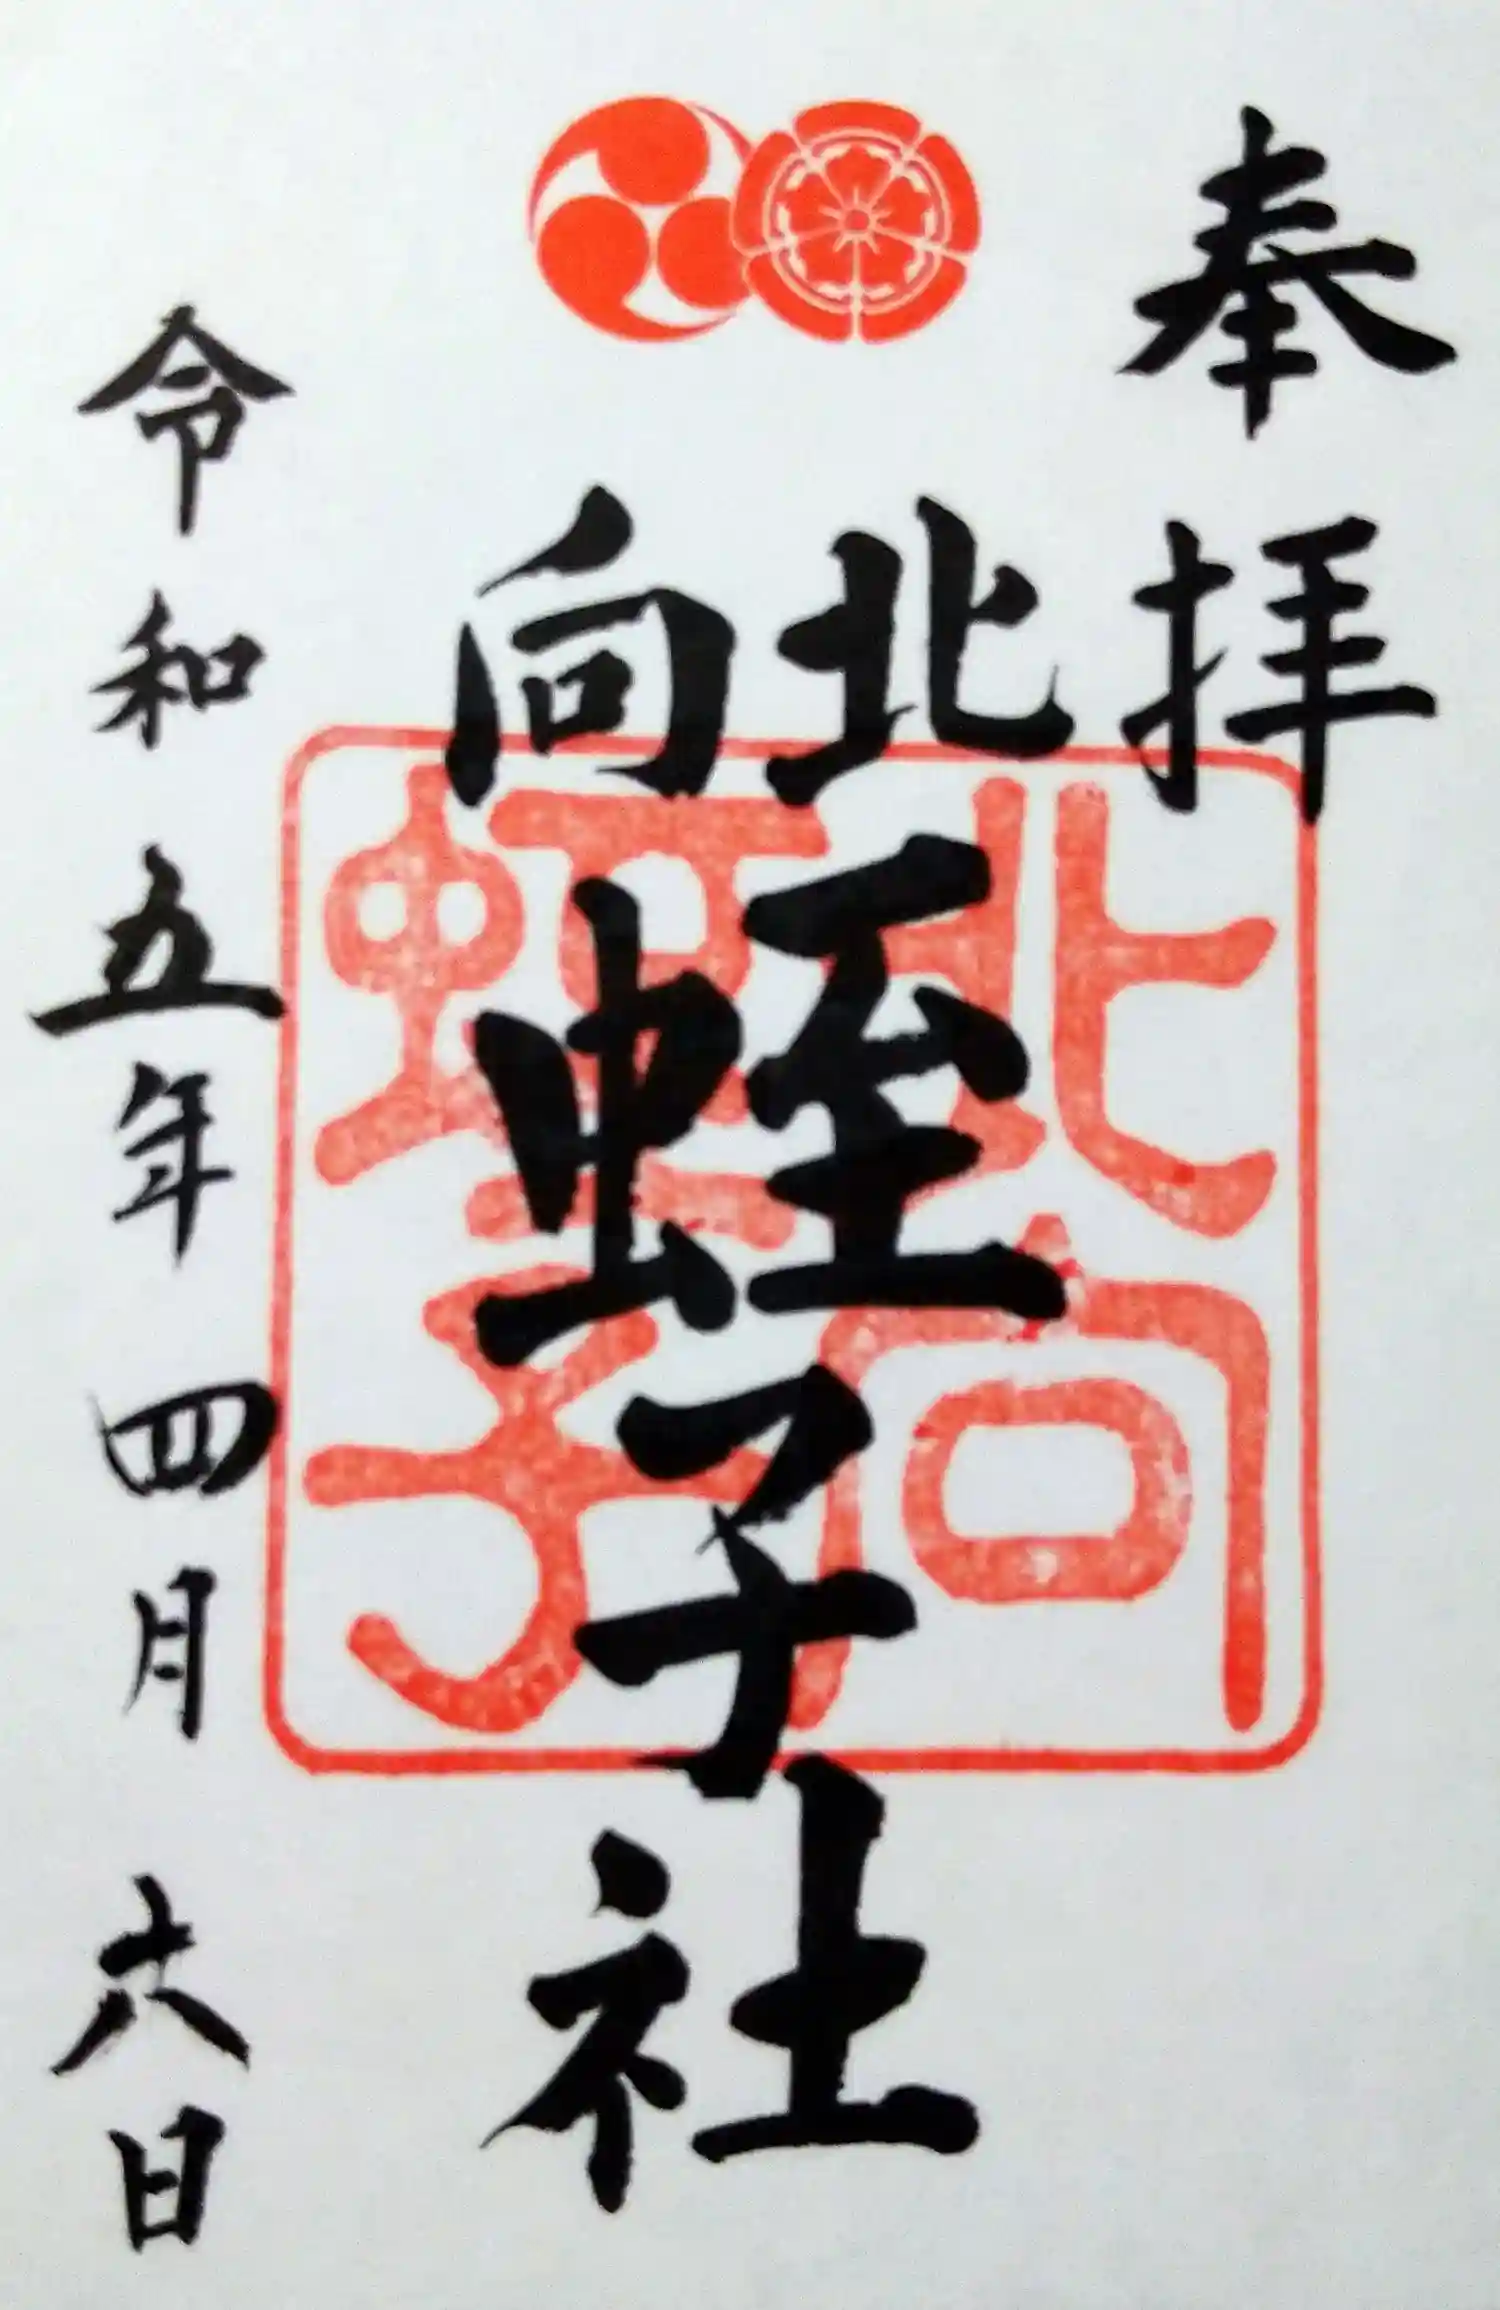 奉拝
北向蛭子社
北向蛭子
令和五年四月六日